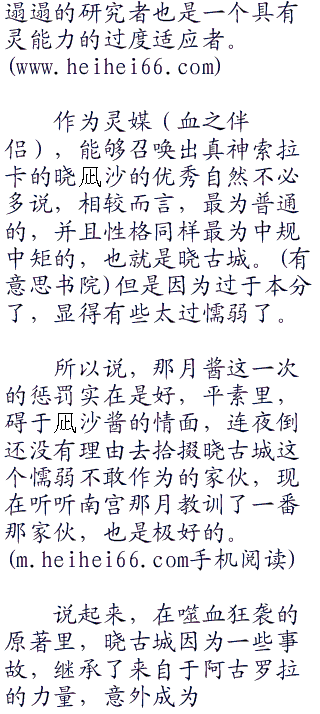 遢遢的研究者也是一个具有
灵能力的过度适应者。
(www.heihei66.com)
作为灵媒（血之伴
侣），能够召唤出真神索拉
卡的晓凪沙的优秀自然不必
多说，相较而言，最为普通
的，并且性格同样最为中规
中矩的，也就是晓古城。(有
意思书院)但是因为过于本分
了，显得有些太过懦弱了。
所以说，那月酱这一次
的惩罚实在是好，平素里，
碍于凪沙酱的情面，连夜倒
还没有理由去拾掇晓古城这
个懦弱不敢作为的家伙，现
在听听南宫那月教训了一番
那家伙，也是极好的。
(m.heihei66.com手机阅读)
说起来，在噬血狂袭的
原著里，晓古城因为一些事
故，继承了来自于阿古罗拉
的力量，意外成为